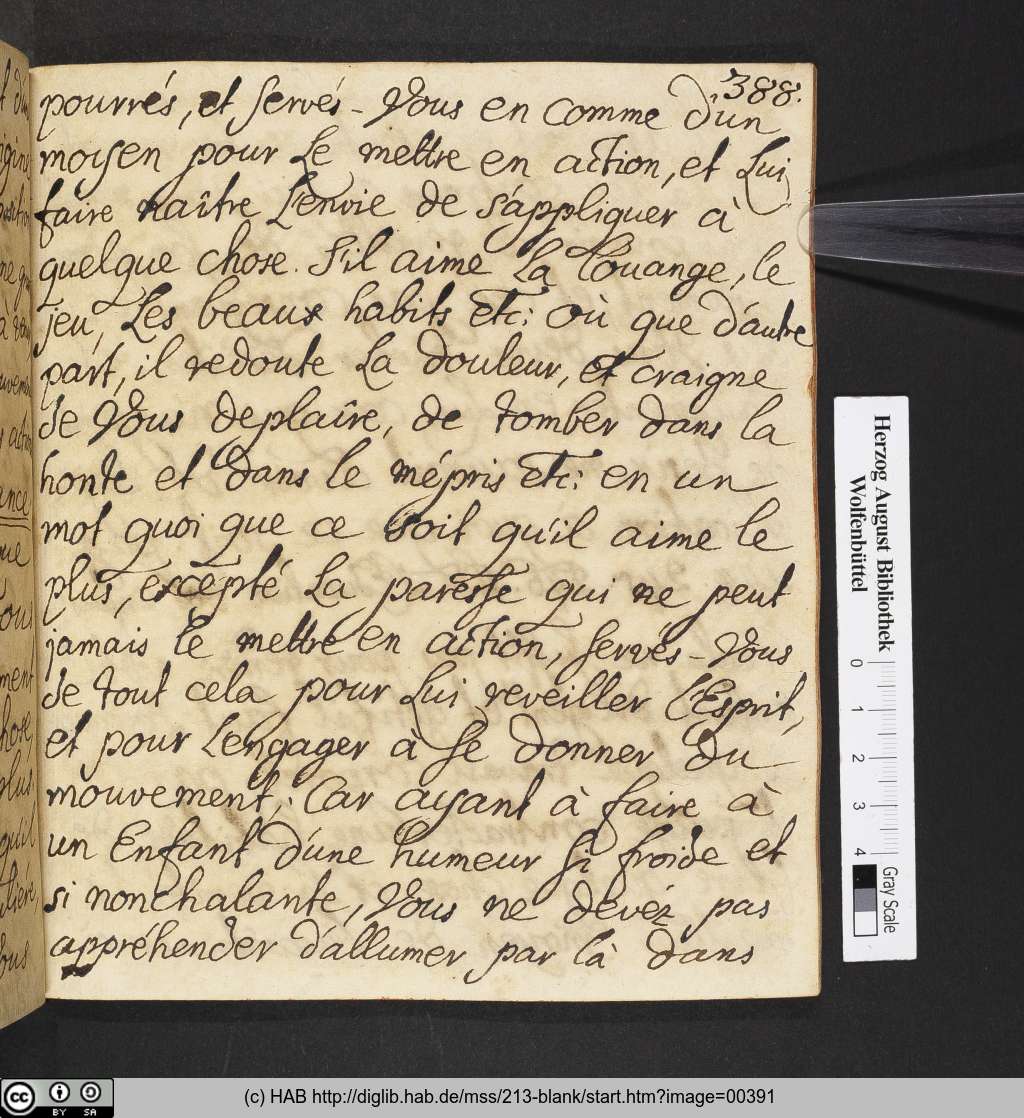 388.
pourrés, et servés-Vous en comme d'un
moyen pour Le mettre en action, et Lui
faire naître L'envie de s'appliquer à
quelque chose. S'il aime La Louange, le
jeu, Les beaux habits etc: où que d'autre
part, il redoute La douleur, et craigne
de Vous deplaîre, de tomber dans la
honte et dans le mépris etc: en un
mot quoi que ce soit qu'il aime le
plus, excepté La paresse qui ne peut
jamais le mettre en action, servés-Vous
de tout cela pour Lui reveiller L'Esprit,
et pour L'engager à se donner du
mouvement; Car ayant à faire à
un Enfant d'une humeur si froide et
si nonchalante, Vous ne devéz pas
appréhender d'allumer par là dans
Herzog August Bibliothek
Wolfenbüttel
0 1 2 3 4
Gray Scale
cc BY SA
(c) HAB http://diglib.hab.de/mss/213-blank/start.htm?image=00391